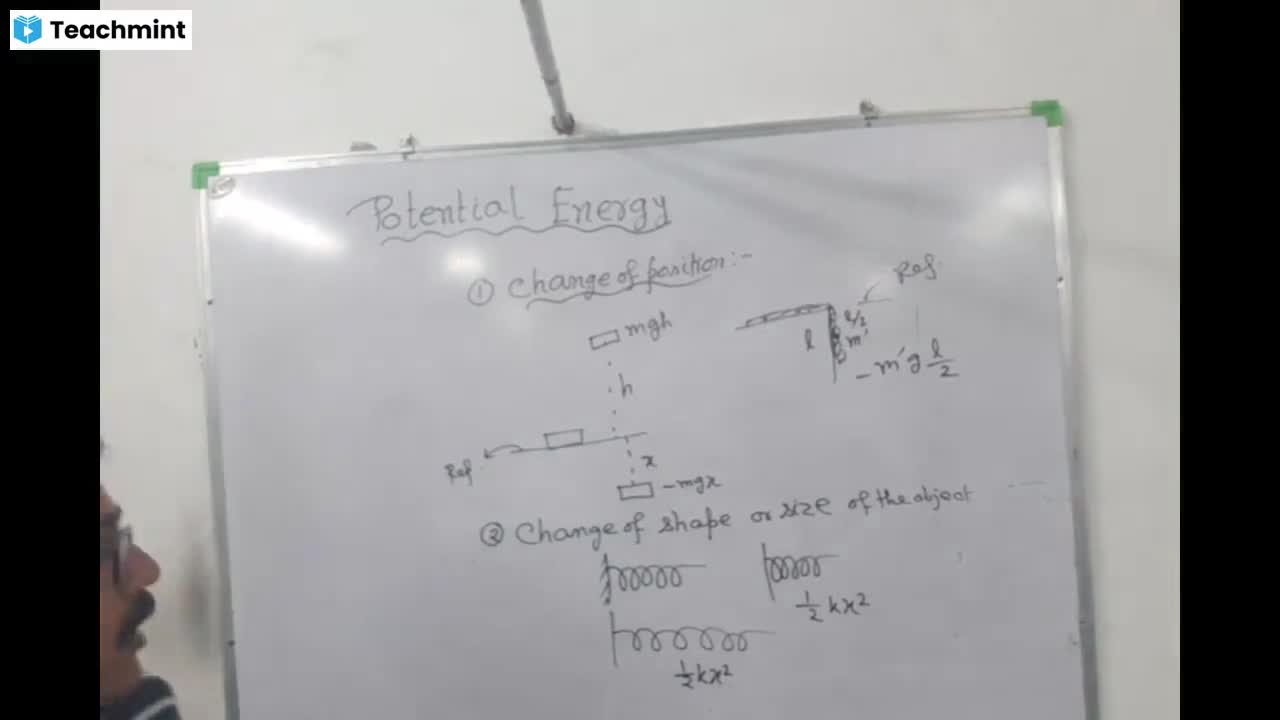 Teachmint
Potential Energy
① Change of position :-
mgh
h
Ref
x
-mgx
Ref.
l/2
l
m'
- m'g l/2
② Change of shape or size of the object
1/2 kx²
1/2 kx²